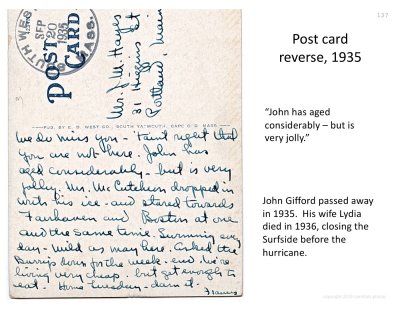 137
Post card
reverse, 1935
SOUTH WES
SEP
20
1935
MASS.
POST
CARD
Mr. J. M. Hayes
31 Higgins St
Portland, Maine
PUB. BY E. D. WEST CO., SOUTH YARMOUTH, CAPE COD, MASS.
We do miss you - t'aint right that
you are not here. John has
aged considerably - but is very
jolly. Mr. McCutcheon dropped in
with his ice - and stared towards
Fairhaven and Boston at one
and the same time. Swimming every
day - mild as may here. Asked the
Burrips down for the week-end. We're
living very cheap - but get enough to
eat. Home Tuesday - darn it.
Frances
“John has aged
considerably – but is
very jolly.”
John Gifford passed away
in 1935. His wife Lydia
died in 1936, closing the
Surfside before the
hurricane.